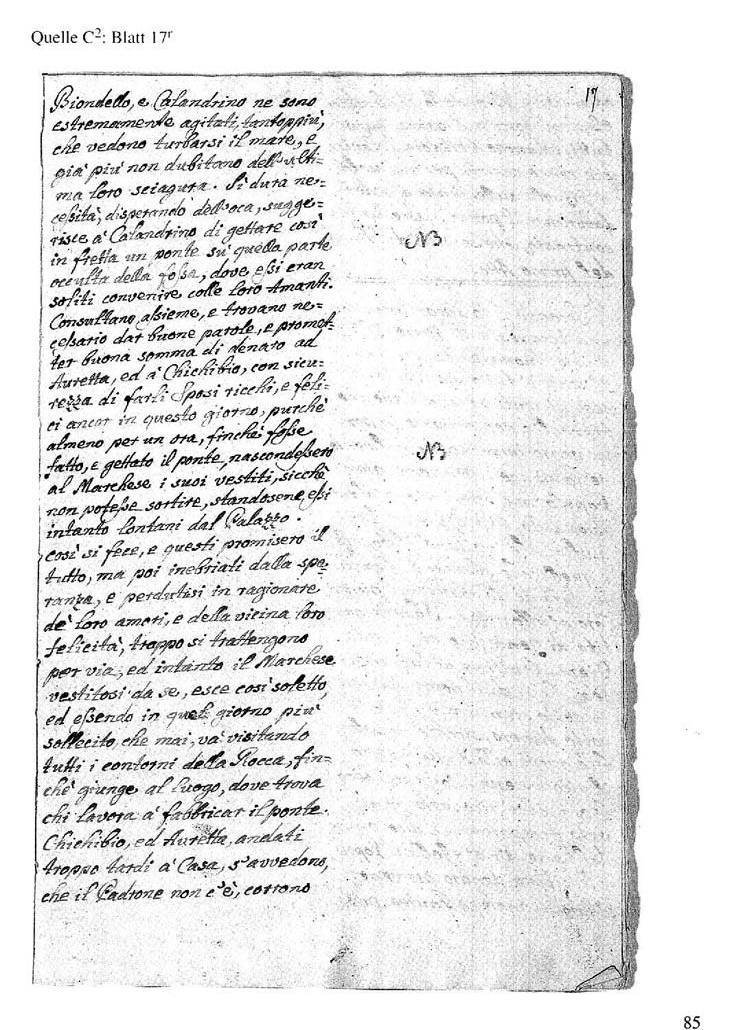 Quelle C²: Blatt 17ʳ
17
Biondello, e Calandrino ne sono
estremamente agitati, tantoppiù,
che vedono turbarsi il mare, e
già più non dubitano dell'ulti=
ma loro sciagura. Si dura ne=
ceſsità, disperando dell'oca, sugge=
risce à Calandrino di gettare così
in fretta un ponte sù quella parte
occulta della foſsa, dove eſsi eran
soliti convenire colle loro Amanti.
Consultano aſsieme, e trovano ne=
ceſsario dar buone parole, e promet=
ter buona somma di denaro ad
Auretta, ed à Chichibio, con sicu=
rezza di farli Sposi ricchi, e feli=
ci ancor in questo giorno, purchè
almeno per un ora, finchè foſse
fatto, e gettato il ponte, nascondeſsero
al Marchese i suoi vestiti, sicchè
non poteſse sortire, standosene eſsi
intanto lontani dal Palazzo.
così si fece, e questi promisero il
tutto, ma poi inebriati dalla spe=
ranza, e perdutisi in ragionare
de' loro amori, e della vicina loro
felicità, troppo si trattengono
per via, ed intanto il Marchese
vestitosi da se, esce così soletto,
ed eſsendo in quel giorno più
sollecito che mai, và visitando
tutti i contorni della Rocca, fin=
chè giunge al luogo, dove trova
chi lavora à fabbricar il ponte.
Chichibio, ed Auretta, andati
troppo tardi à Casa, s'avvedono,
che il Padrone non c'è, corrono
NB
NB
85